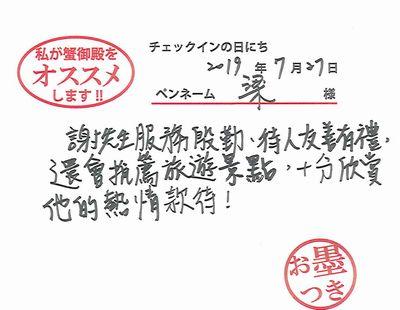 私が蟹御殿を
オススメ
します!!
チェックインの日にち
2019年7月27日
ペンネーム 梁 様
謝先生服務殷勤、待人友善有禮,
還會推薦旅遊景點,十分欣賞
他的熱情款待!
お墨
つき